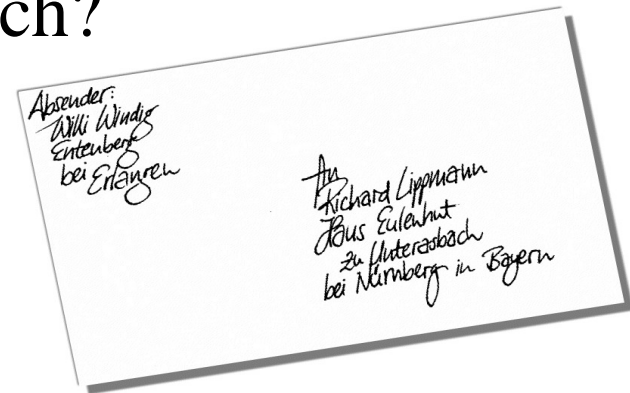 ch?
Absender:
Willi Windig
Entenberg
bei Erlangen
An
Richard Lippmann
Haus Eulenhut
zu Unterasbach
bei Nürnberg in Bayern